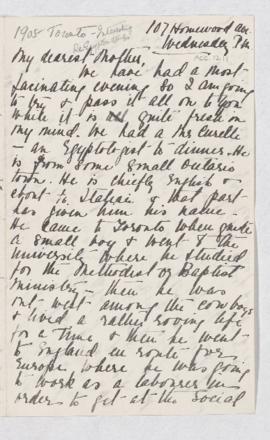 1908 Toronto - Interesting
107 Homewood Ave
Wednesday P.M
My dearest Mother,
We have had a most
facinating evening so I am going
to try & pass it all on to you
while it is all quite fresh on
my mind. We had a Mr Curelle
- an Egyptologist to dinner. He
is from some small Ontario
town. He is chiefly English &
about 1/8 Italian & that part
has given him his name.
He came to Toronto when quite
a small boy & went to the
University where he studied
for the Methodist or Baptist
Ministry - then he was
out west among the cowboys
& lived a rather roving life
for a time & then he went
to England en route for
Europe, where he was going
to work as a labourer in
order to get at the Social